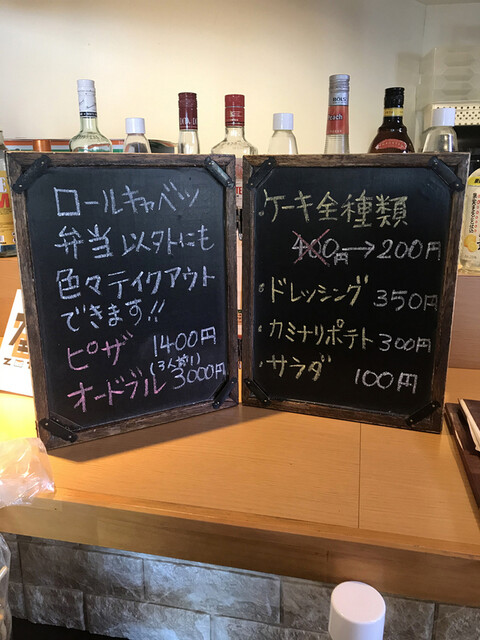 ロールキャベツ
弁当以外にも
色々テイクアウト
できます!!
ピザ 1400円
オードブル 3000円
・ケーキ全種類
400円→200円
・ドレッシング 350円
・カミナリポテト 300円
・サラダ 100円
Peach